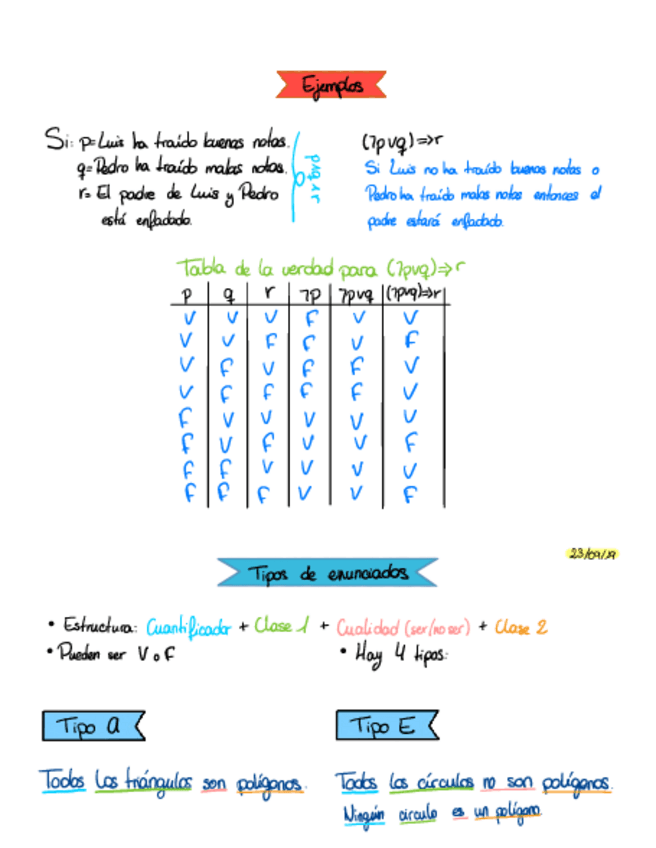 Ejemplos
Si: p=Luis ha traído buenas notas.
q=Pedro ha traído malas notas.
r= El padre de Luis y Pedro
está enfadado.
(¬p∨q)=>r
Si Luis no ha traído buenas notas o
Pedro ha traído malas notas entonces el
padre estará enfadado.
Tabla de la verdad para (¬p∨q)=>r
p q r ¬p ¬p∨q (¬p∨q)=>r
V V V F V V
V V F F V F
V F V F F V
V F F F F V
F V V V V V
F V F V V F
F F V V V V
F F F V V F
23/09/19
Tipos de enunciados
• Estructura: Cuantificador + Clase 1 + Cualidad (ser/no ser) + Clase 2
• Pueden ser V o F
• Hay 4 tipos:
Tipo A
Todos los triángulos son polígonos.
Tipo E
Todos los círculos no son polígonos.
Ningún círculo es un polígono.